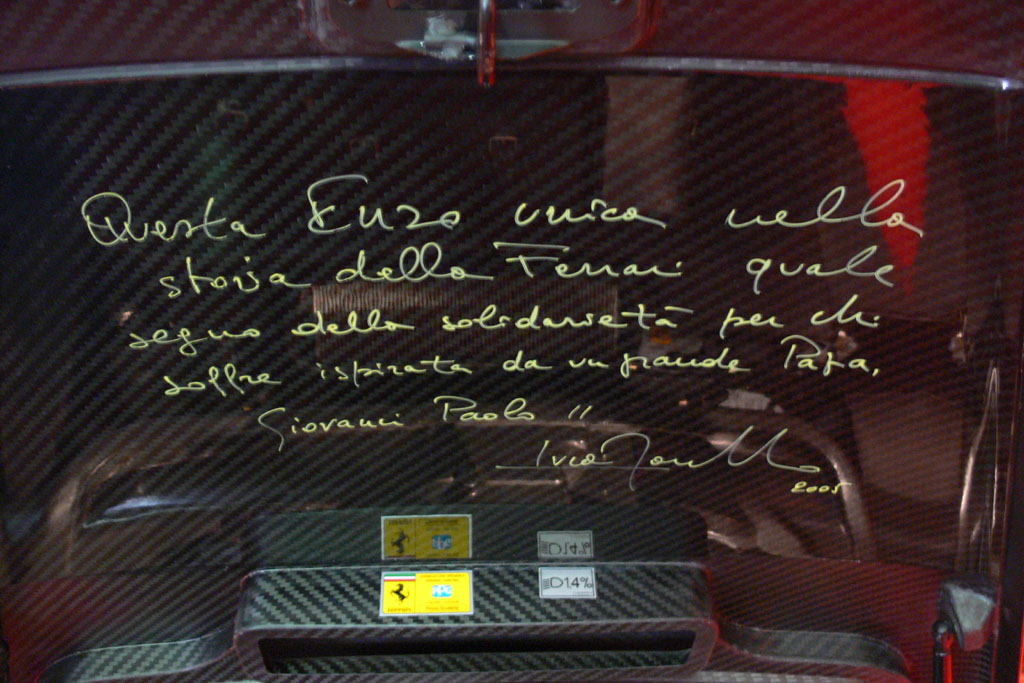 Questa Enzo unica nella
storia della Ferrari quale
segno della solidarietà per chi
soffre ispirata da un grande Papa,
Giovanni Paolo II
Luca
2005
D14%
Ferrari
PPG
D14%